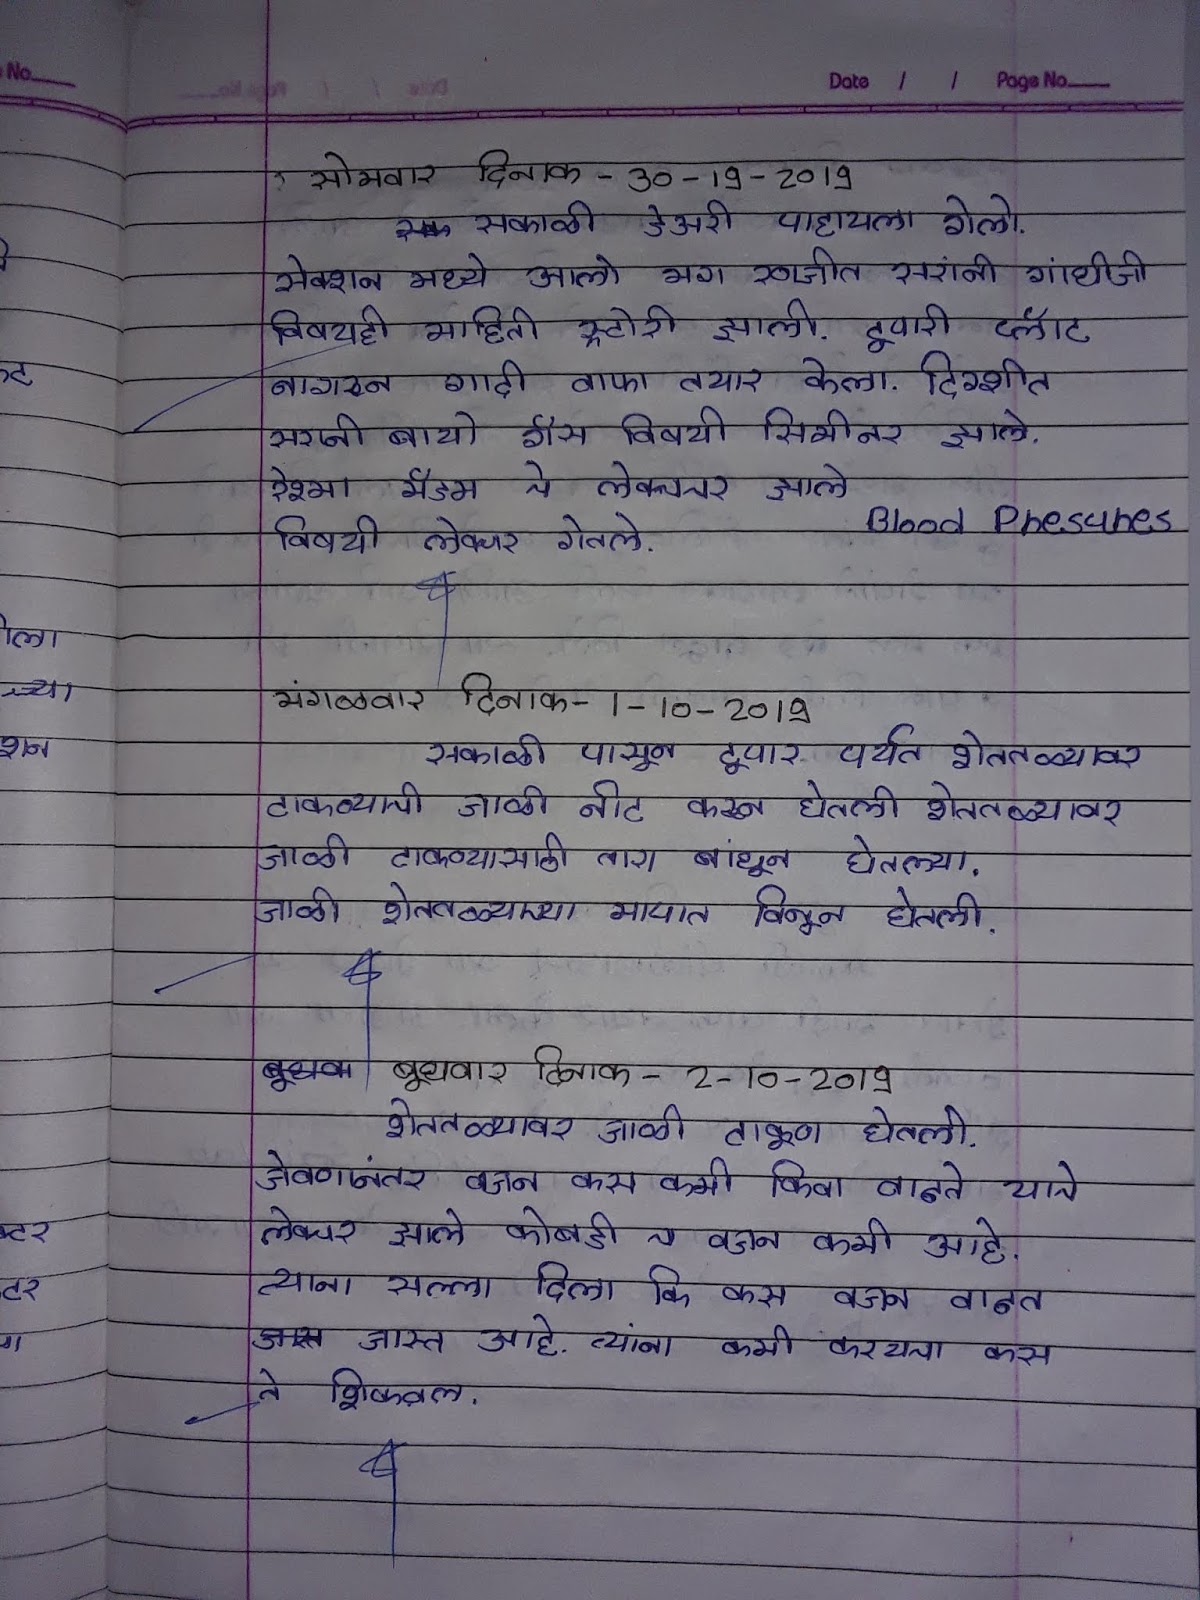 No.
Date / / Page No.
सोमवार दिनाक - 30-19-2019
सकाळी डेअरी पाहायला गेलो.
सेक्शन मध्ये आलो मग रणजीत सरांनी गांधीजी
विषयही माहिती स्टोरी झाली. दूपारी प्लॅाट
नागरुन गादी वाफा तयार केला.
सरानी बायो गॅस विषयी सिमीनर झाले.
रेश्मा मॅडम चे लेक्चचर झाले
Blood Presures
विषयी लेक्चर गेतले.
मंगळवार दिनाक - 1-10-2019
सकाळी पासून दूपार पर्यत शेततळ्यावर
टाकव्याची जाळी नीट करुन घेतली शेततळ्यावर
जाळी टाकण्यासाठी तारा बांधून घेतल्या.
जाळी शेततळ्याच्या मापात विनून घेतली.
बूधवा बूधवार दिनाक - 2-10-2019
शेततळ्यावर जाळी टाकूण घेतली.
जेवणानंतर वजन कस कमी किवा वाढते याचे
लेक्चर झाले कोबडी च वजन कमी आहे.
त्याना सल्ला दिला कि कस वजन वाढत
जास्त आहे. त्यांना कमी करयचा कस
ते शिकवल.